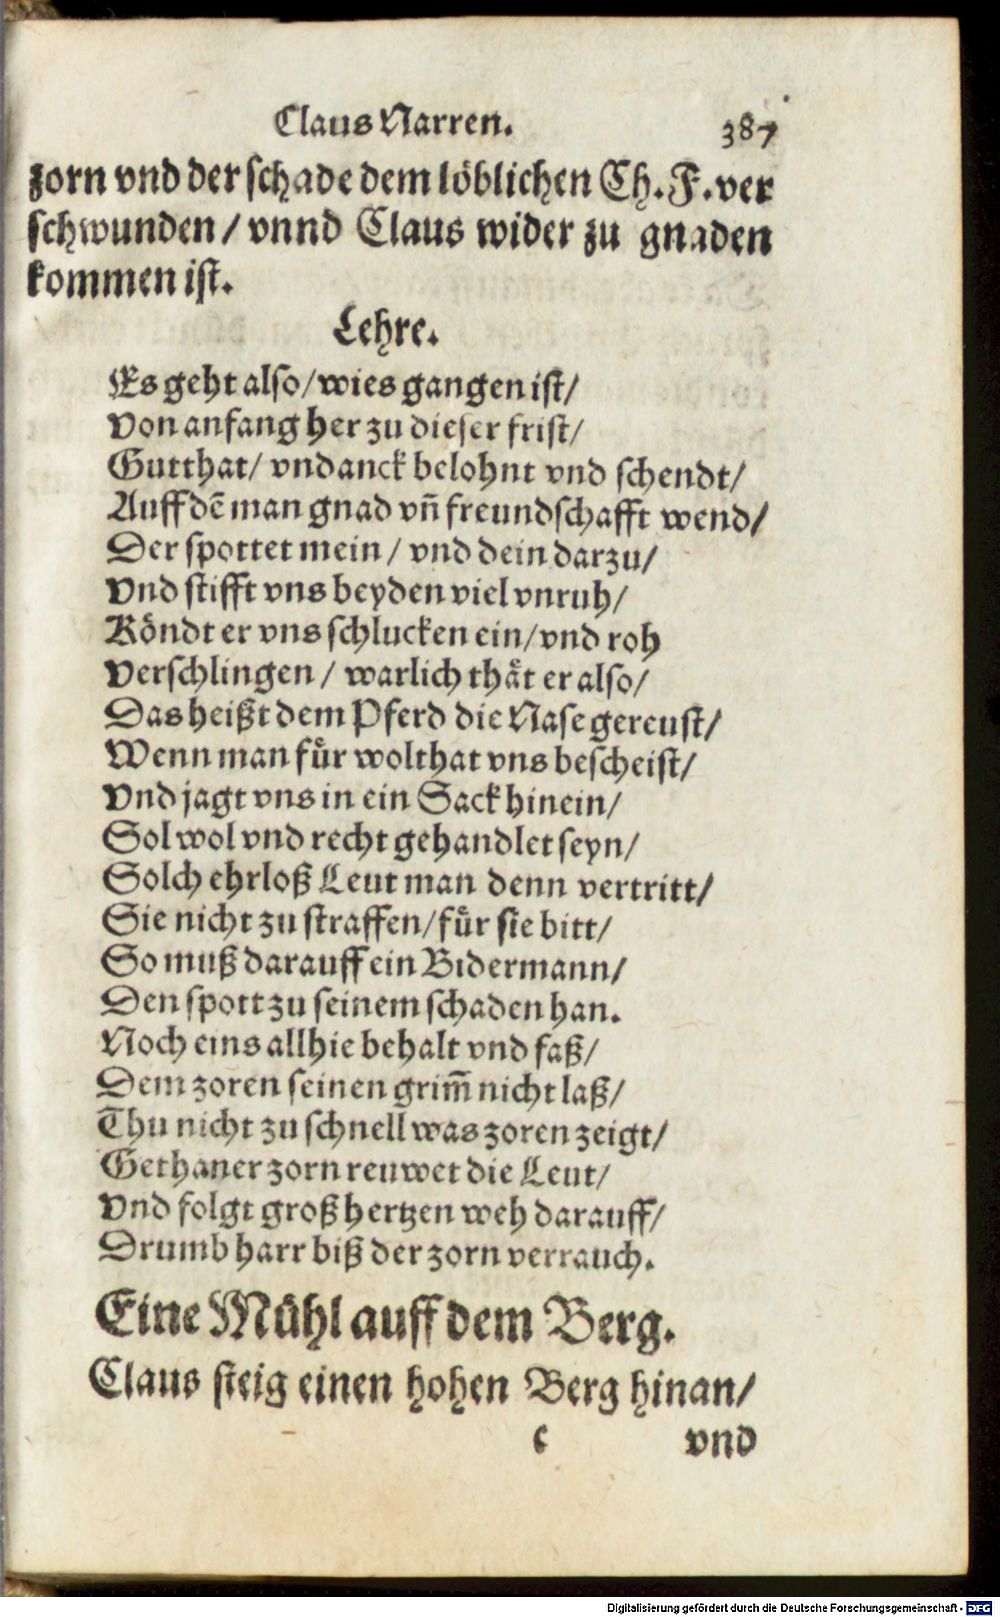 Claus Narren. 387
zorn vnd der schade dem löblichen Ch. F. ver
schwunden/ vnnd Claus wider zu gnaden
kommen ist.
Lehre.
Es geht also/ wies gangen ist/
Von anfang her zu dieser frist/
Gutthat/ vndanck belohnt vnd schendt/
Auff dē man gnad vn̄ freundschafft wend/
Der spottet mein/ vnd dein darzu/
Vnd stifft vns beyden viel vnruh/
Köndt er vns schlucken ein/ vnd roh
Verschlingen/ warlich thät er also/
Das heißt dem Pferd die Nase gereust/
Wenn man für wolthat vns bescheist/
Vnd jagt vns in ein Sack hinein/
Sol wol vnd recht gehandlet seyn/
Solch ehrloß Leut man denn vertritt/
Sie nicht zu straffen/ für sie bitt/
So muß darauff ein Bidermann/
Den spott zu seinem schaden han.
Noch eins allhie behalt vnd faß/
Dem zoren seinen grim̄ nicht laß/
Thu nicht zu schnell was zoren zeigt/
Gethaner zorn reuwet die Leut/
Vnd folgt groß hertzen weh darauff/
Drumb harr biß der zorn verrauch.
Eine Mühl auff dem Berg.
Claus steig einen hohen Berg hinan/
c vnd
Digitalisierung gefördert durch die Deutsche Forschungsgemeinschaft - DFG